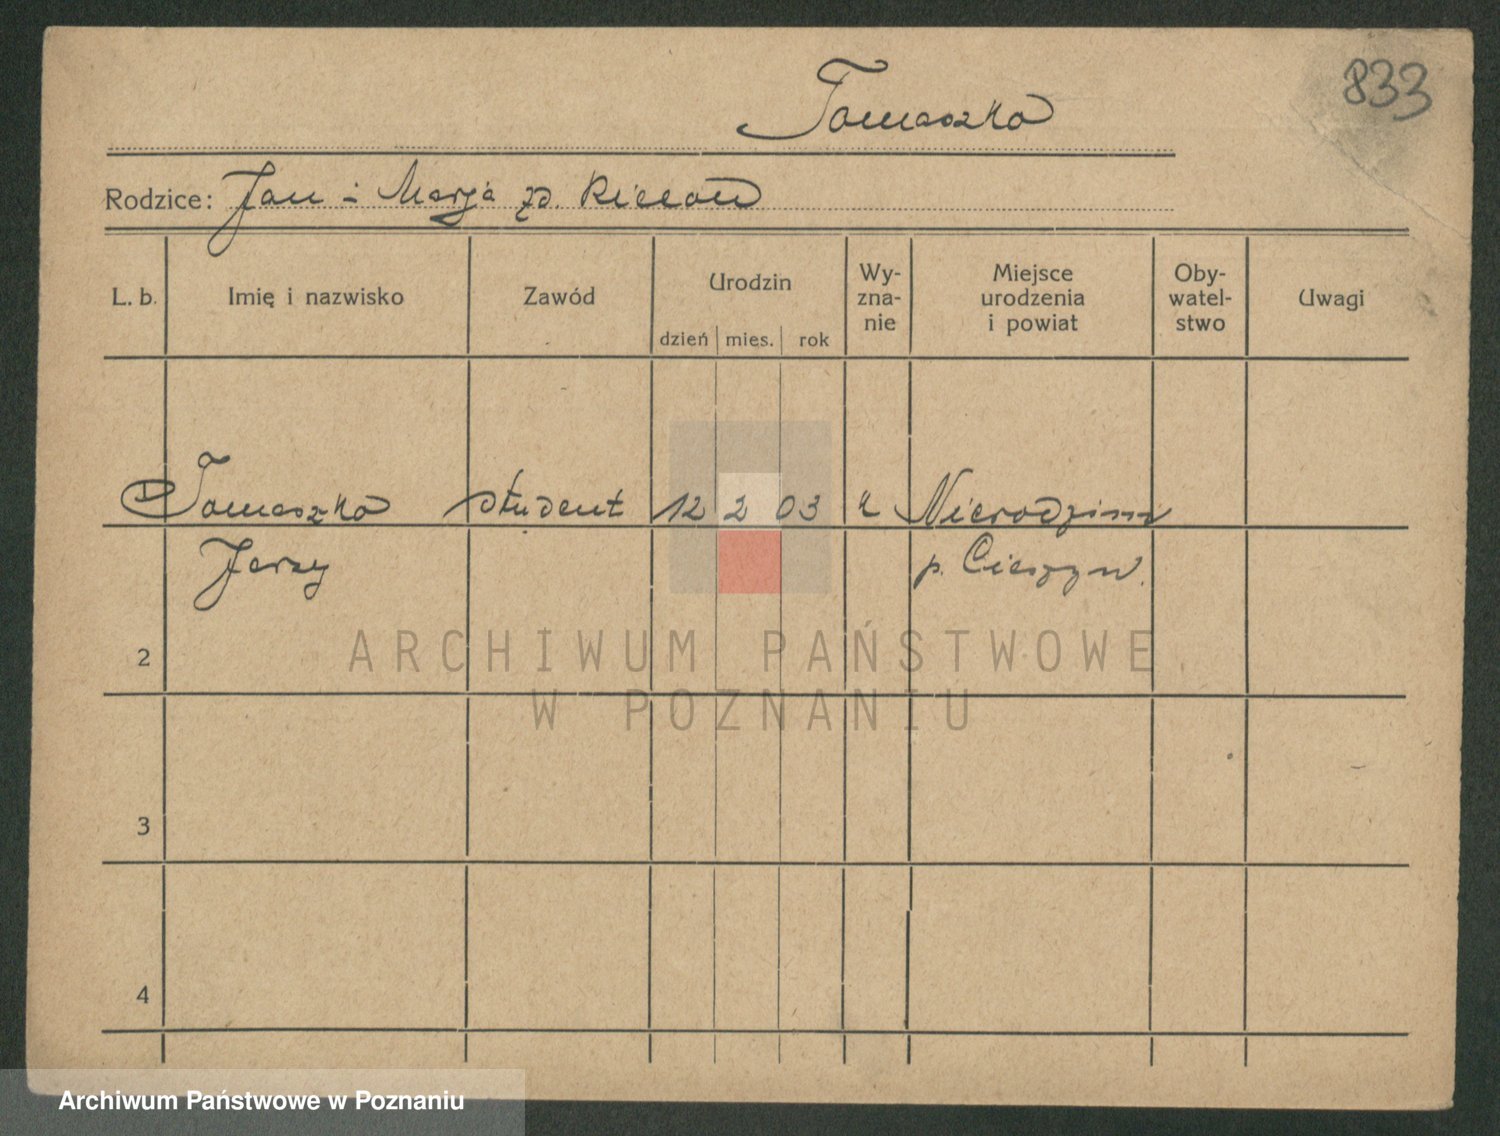 833
Tomaszko
Rodzice: Jan i Marja zd.
L. b. Imię i nazwisko Zawód Urodzin Wy- Miejsce Oby- Uwagi
zna- urodzenia watel-
nie i powiat stwo
dzień mies. rok
1 Tomaszko student 12 2 03 k Nierodzim
Jerzy p. Cieszyn.
2
ARCHIWUM PAŃSTWOWE
W POZNANIU
3
4
Archiwum Państwowe w Poznaniu